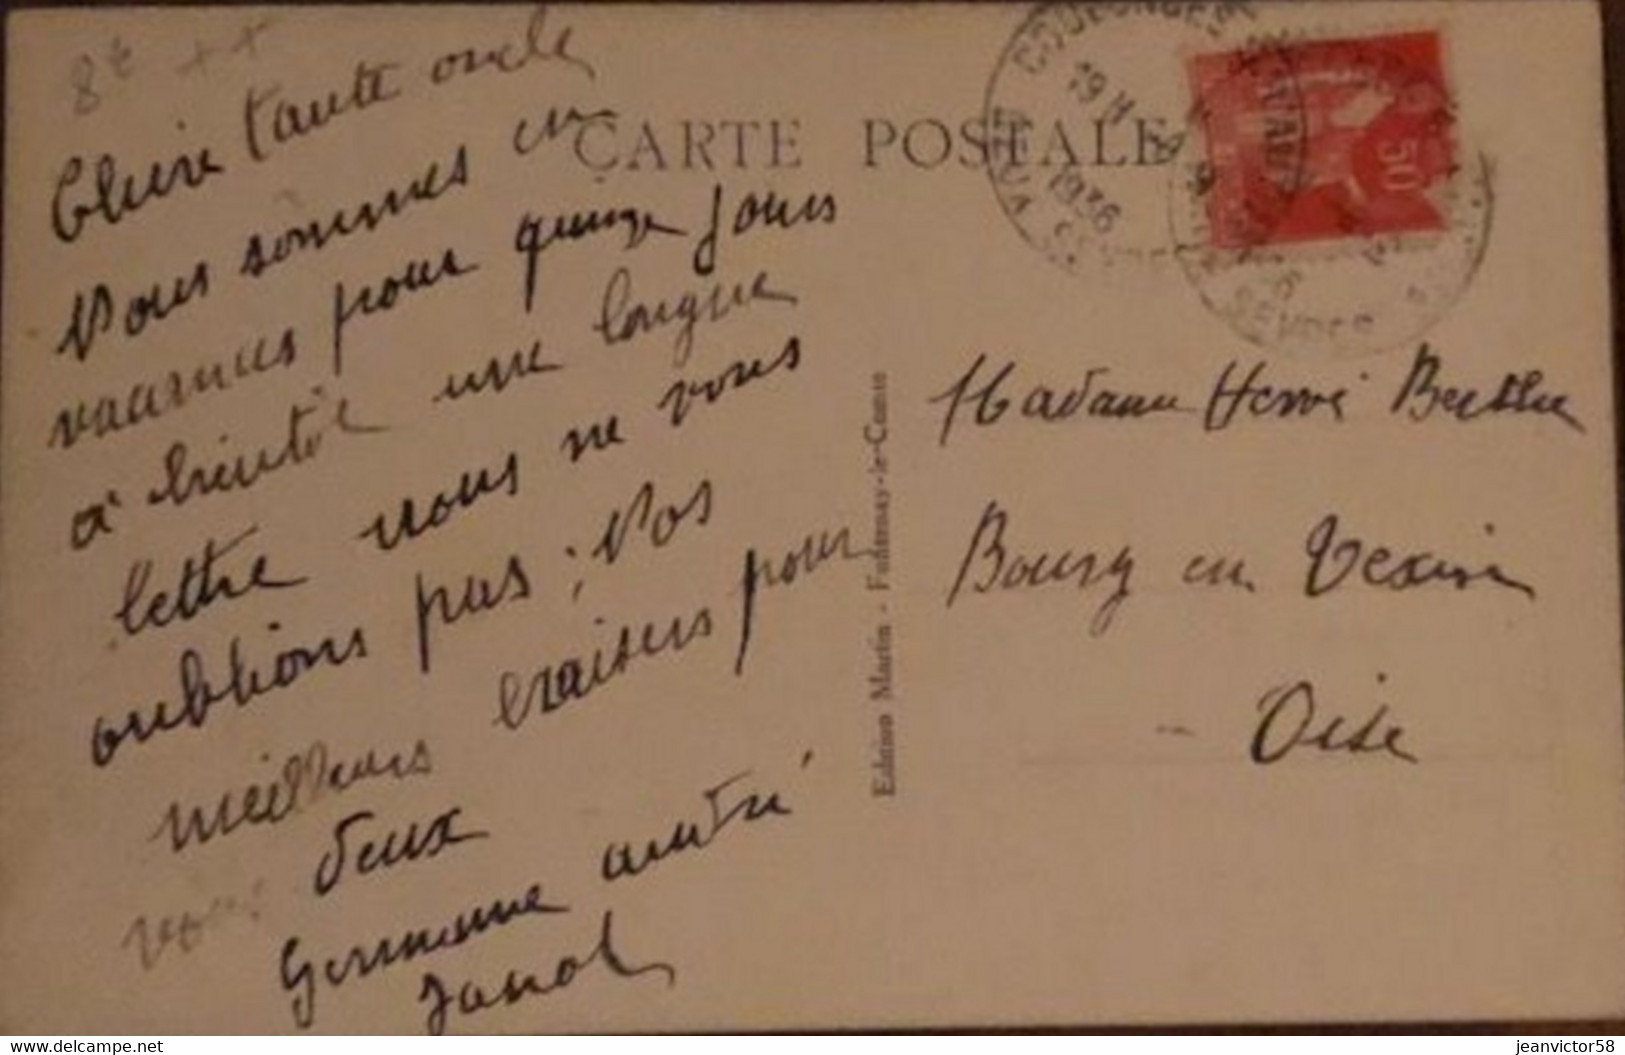 8€ ++
Chère tante oncle
Nous sommes en
vacances pour quinze jours
à bientôt une longue
lettre nous ne vous
oublions pas, Nos
meilleurs baisers pour
vous deux
Germaine andré
CARTE POSTALE
Edition Marin - Fontenay-le-Comte
COULONGES
19 H
1936
DEUX SEVRES
50
Madame Hervé
Bourg en Vexin
Oise
jeanvictor58